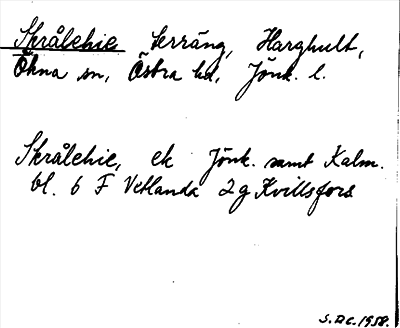 Skrålehie terräng, Harghult,
Ökna sn, Östra hd, Jönk. l.
Skrålehie, ek Jönk. samt Kalm.
bl. 6 F Vetlanda 2g Kvillsfors
S.Dc. 1958.